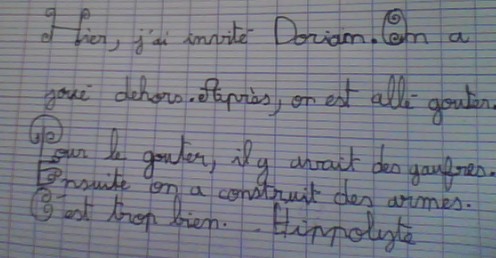 Hier, j'ai invité Dorian. On a
joué dehors. Après, on est allé gouter.
Pour le gouter, il y avait des gaufres.
Ensuite on a construit des armes.
C'est trop bien. Hippolyte